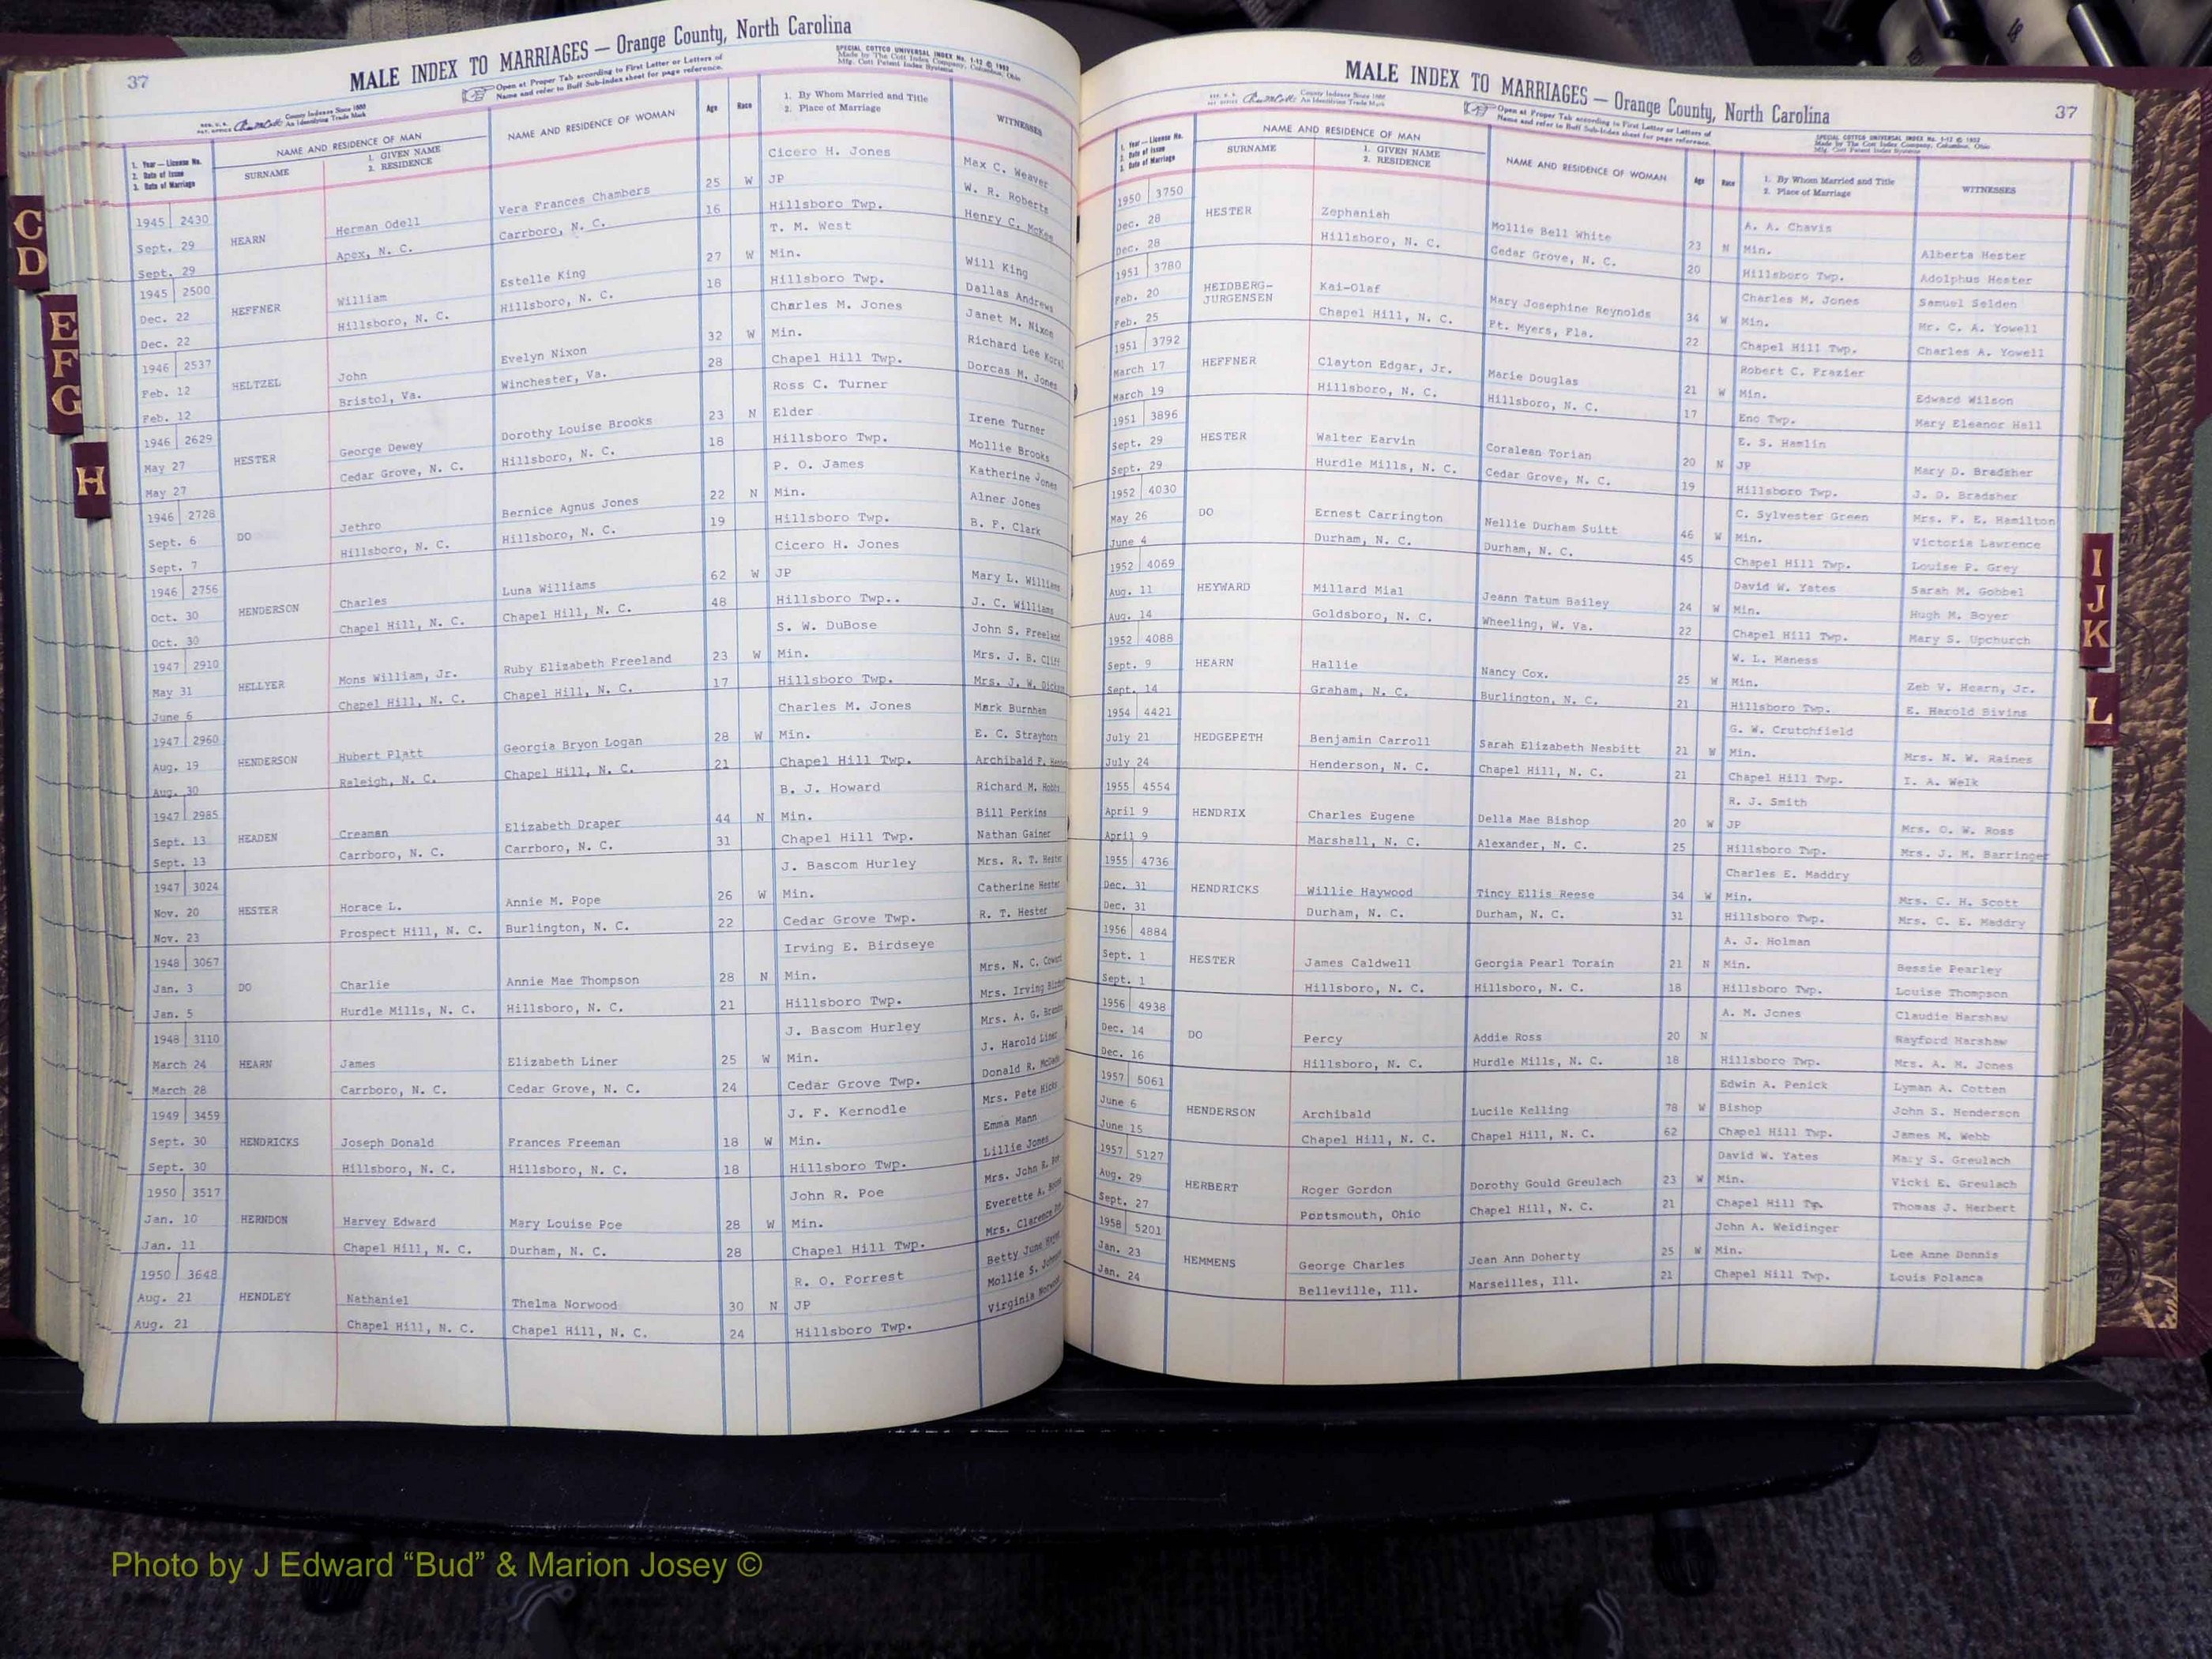 37
MALE INDEX TO MARRIAGES — Orange County, North Carolina
SPECIAL COTTCO UNIVERSAL INDEX No. 1-12 © 1952
Made by The Cott Index Company, Columbus, Ohio
Mfg. Cott Patent Index Systems
County Indexes Since 1888
An Identifying Trade Mark
Open at Proper Tab according to First Letter or Letters of
Name and refer to Buff Sub-Index sheet for page reference.
1. Year — License No.
2. Date of Issue
3. Date of Marriage
NAME AND RESIDENCE OF MAN
SURNAME
1. GIVEN NAME
2. RESIDENCE
NAME AND RESIDENCE OF WOMAN
Age
Race
1. By Whom Married and Title
2. Place of Marriage
WITNESSES
1945 2430 Cicero H. Jones Max C. Weaver
Sept. 29 HEARN Herman Odell Vera Frances Chambers 25 W JP W. R. Roberts
Sept. 29 Apex, N. C. Carrboro, N. C. 16 Hillsboro Twp. Henry C.
1945 2500 T. M. West
Dec. 22 HEFFNER William Estelle King 27 W Min. Will King
Dec. 22 Hillsboro, N. C. Hillsboro, N. C. 18 Hillsboro Twp. Dallas Andrews
1946 2537 Charles M. Jones Janet M. Nixon
Feb. 12 HELTZEL John Evelyn Nixon 32 W Min. Richard Lee
Feb. 12 Bristol, Va. Winchester, Va. 28 Chapel Hill Twp. Dorcas M. Jones
1946 2629 Ross C. Turner
May 27 HESTER George Dewey Dorothy Louise Brooks 23 N Elder Irene Turner
May 27 Cedar Grove, N. C. Hillsboro, N. C. 18 Hillsboro Twp. Mollie Brooks
1946 2728 P. O. James Katherine Jones
Sept. 6 DO Jethro Bernice Agnus Jones 22 N Min. Alner Jones
Sept. 7 Hillsboro, N. C. Hillsboro, N. C. 19 Hillsboro Twp. B. F. Clark
1946 2756 Cicero H. Jones
Oct. 30 HENDERSON Charles Luna Williams 62 W JP Mary L. Williams
Oct. 30 Chapel Hill, N. C. Chapel Hill, N. C. 48 Hillsboro Twp.. J. C. Williams
1947 2910 S. W. DuBose John S. Freeland
May 31 HELLYER Mons William, Jr. Ruby Elizabeth Freeland 23 W Min. Mrs. J. B. Cliff
June 6 Chapel Hill, N. C. Chapel Hill, N. C. 17 Hillsboro Twp. Mrs. J. W.
1947 2960 Charles M. Jones Mark Burnham
Aug. 19 HENDERSON Hubert Platt Georgia Bryon Logan 28 W Min. E. C. Strayhorn
Aug. 30 Raleigh, N. C. Chapel Hill, N. C. 21 Chapel Hill Twp. Archibald
1947 2985 B. J. Howard Richard M. Hobbs
Sept. 13 HEADEN Creaman Elizabeth Draper 44 N Min. Bill Perkins
Sept. 13 Carrboro, N. C. Carrboro, N. C. 31 Chapel Hill Twp. Nathan Gainer
1947 3024 J. Bascom Hurley Mrs. R. T. Hester
Nov. 20 HESTER Horace L. Annie M. Pope 26 W Min. Catherine Hester
Nov. 23 Prospect Hill, N. C. Burlington, N. C. 22 Cedar Grove Twp. R. T. Hester
1948 3067 Irving E. Birdseye
Jan. 3 DO Charlie Annie Mae Thompson 28 N Min. Mrs. N. C.
Jan. 5 Hurdle Mills, N. C. Hillsboro, N. C. 21 Hillsboro Twp. Mrs. Irving
1948 3110 J. Bascom Hurley Mrs. A. G.
March 24 HEARN James Elizabeth Liner 25 W Min. J. Harold Liner
March 28 Carrboro, N. C. Cedar Grove, N. C. 24 Cedar Grove Twp. Donald R.
1949 3459 J. F. Kernodle Mrs. Pete Hicks
Sept. 30 HENDRICKS Joseph Donald Frances Freeman 18 W Min. Emma Mann
Sept. 30 Hillsboro, N. C. Hillsboro, N. C. 18 Hillsboro Twp. Lillie Jones
1950 3517 John R. Poe Mrs. John R.
Jan. 10 HERNDON Harvey Edward Mary Louise Poe 28 W Min. Everette A.
Jan. 11 Chapel Hill, N. C. Durham, N. C. 28 Chapel Hill Twp. Mrs. Clarence
1950 3648 R. O. Forrest Betty June
Aug. 21 HENDLEY Nathaniel Thelma Norwood 30 N JP Mollie S.
Aug. 21 Chapel Hill, N. C. Chapel Hill, N. C. 24 Hillsboro Twp. Virginia Norwood
C
D
E
F
G
H
MALE INDEX TO MARRIAGES — Orange County, North Carolina
37
County Indexes Since 1888
An Identifying Trade Mark
Open at Proper Tab according to First Letter or Letters of
Name and refer to Buff Sub-Index sheet for page reference.
SPECIAL COTTCO UNIVERSAL INDEX No. 1-12 © 1952
Made by The Cott Index Company, Columbus, Ohio
Mfg. Cott Patent Index Systems
1. Year — License No.
2. Date of Issue
3. Date of Marriage
NAME AND RESIDENCE OF MAN
SURNAME
1. GIVEN NAME
2. RESIDENCE
NAME AND RESIDENCE OF WOMAN
Age
Race
1. By Whom Married and Title
2. Place of Marriage
WITNESSES
1950 3750 A. A. Chavis
Dec. 28 HESTER Zephaniah Mollie Bell White 23 N Min. Alberta Hester
Dec. 28 Hillsboro, N. C. Cedar Grove, N. C. 20 Hillsboro Twp. Adolphus Hester
1951 3780 Charles M. Jones Samuel Selden
Feb. 20 HEIDBERG-JURGENSEN Kai-Olaf Mary Josephine Reynolds 34 W Min. Mr. C. A. Yowell
Feb. 25 Chapel Hill, N. C. Ft. Myers, Fla. 22 Chapel Hill Twp. Charles A. Yowell
1951 3792 Robert C. Frazier
March 17 HEFFNER Clayton Edgar, Jr. Marie Douglas 21 W Min. Edward Wilson
March 19 Hillsboro, N. C. Hillsboro, N. C. 17 Eno Twp. Mary Eleanor Hall
1951 3896 E. S. Hamlin
Sept. 29 HESTER Walter Earvin Coralean Torian 20 N JP Mary D. Bradsher
Sept. 29 Hurdle Mills, N. C. Cedar Grove, N. C. 19 Hillsboro Twp. J. D. Bradsher
1952 4030 C. Sylvester Green Mrs. F. E. Hamilton
May 26 DO Ernest Carrington Nellie Durham Suitt 46 W Min. Victoria Lawrence
June 4 Durham, N. C. Durham, N. C. 45 Chapel Hill Twp. Louise P. Grey
1952 4069 David W. Yates Sarah M. Gobbel
Aug. 11 HEYWARD Millard Mial Jeann Tatum Bailey 24 W Min. Hugh M. Boyer
Aug. 14 Goldsboro, N. C. Wheeling, W. Va. 22 Chapel Hill Twp. Mary S. Upchurch
1952 4088 W. L. Maness
Sept. 9 HEARN Hallie Nancy Cox. 25 W Min. Zeb V. Hearn, Jr.
Sept. 14 Graham, N. C. Burlington, N. C. 21 Hillsboro Twp. E. Harold Bivins
1954 4421 G. W. Crutchfield
July 21 HEDGEPETH Benjamin Carroll Sarah Elizabeth Nesbitt 21 W Min. Mrs. N. W. Raines
July 24 Henderson, N. C. Chapel Hill, N. C. 21 Chapel Hill Twp. I. A. Welk
1955 4554 R. J. Smith
April 9 HENDRIX Charles Eugene Della Mae Bishop 20 W JP Mrs. O. W. Ross
April 9 Marshall, N. C. Alexander, N. C. 25 Hillsboro Twp. Mrs. J. M. Barringer
1955 4736 Charles E. Maddry
Dec. 31 HENDRICKS Willie Haywood Tincy Ellis Reese 34 W Min. Mrs. C. H. Scott
Dec. 31 Durham, N. C. Durham, N. C. 31 Hillsboro Twp. Mrs. C. E. Maddry
1956 4884 A. J. Holman
Sept. 1 HESTER James Caldwell Georgia Pearl Torain 21 N Min. Bessie Pearley
Sept. 1 Hillsboro, N. C. Hillsboro, N. C. 18 Hillsboro Twp. Louise Thompson
1956 4938 A. M. Jones Claudie Harshaw
Dec. 14 DO Percy Addie Ross 20 N Rayford Harshaw
Dec. 16 Hillsboro, N. C. Hurdle Mills, N. C. 18 Hillsboro Twp. Mrs. A. M. Jones
1957 5061 Edwin A. Penick Lyman A. Cotten
June 6 HENDERSON Archibald Lucile Kelling 78 W Bishop John S. Henderson
June 15 Chapel Hill, N. C. Chapel Hill, N. C. 62 Chapel Hill Twp. James M. Webb
1957 5127 David W. Yates Mary S. Greulach
Aug. 29 HERBERT Roger Gordon Dorothy Gould Greulach 23 W Min. Vicki E. Greulach
Sept. 27 Portsmouth, Ohio Chapel Hill, N. C. 21 Chapel Hill Thomas J. Herbert
1958 5201 John A. Weidinger
Jan. 23 HEMMENS George Charles Jean Ann Doherty 25 W Min. Lee Anne Dennis
Jan. 24 Belleville, Ill. Marseilles, Ill. 21 Chapel Hill Twp. Louis Polanca
I
J
K
L
Photo by J Edward “Bud” & Marion Josey ©